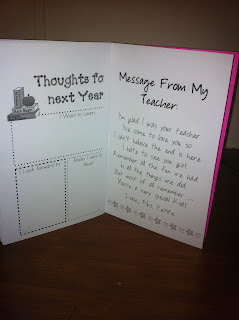 Thoughts fo
next Year
I Want to Learn
I Look Forward to
Books I want to
Read
Message From My
Teacher:
I'm glad I was your teacher
I've come to love you so
I can't believe the end is here
I hate to see you go!
Remember all the fun we had
In all the things we did
But most of all remember...
You're a very special Kid!
Love, Mrs.